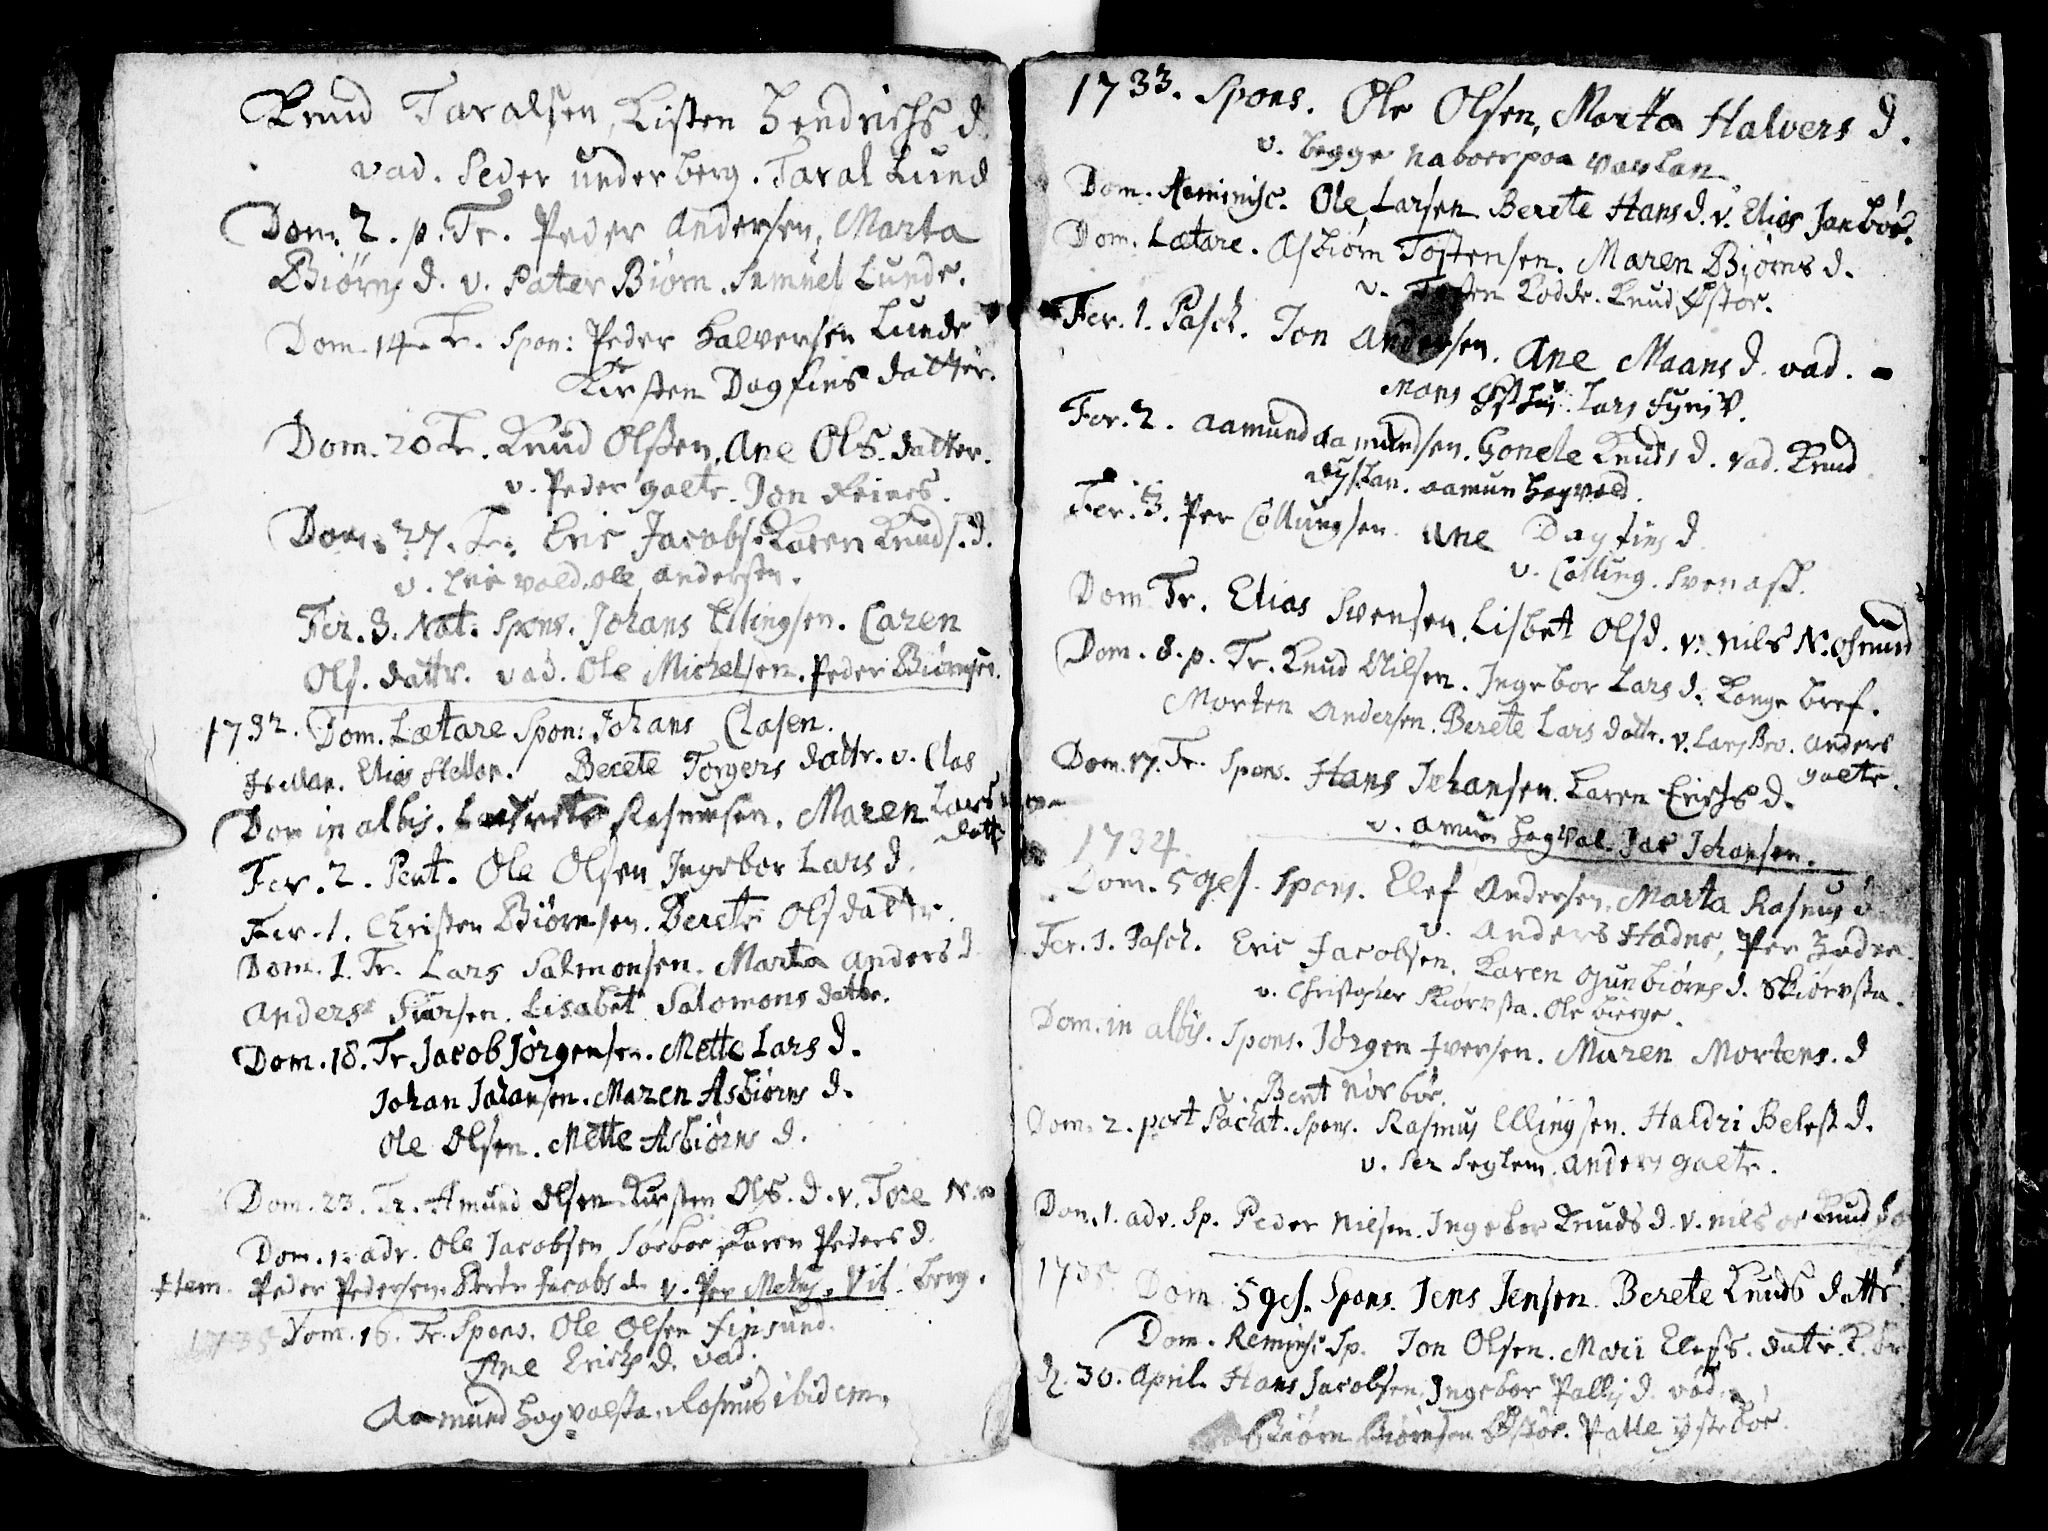 Knud Taralsen, Listen Hendrichs d.
vad. Peder underberg. Taral Lund
Dom. 2. p. Tr. Peder Andersen, Marta
Biørns d. v. Pater Biørn. Samuel Lunde.
Dom. 14. Tr. Spon: Peder Halversen Lunde
Kirsten Dagfins datter.
Dom. 20 Tr. Knud Olssen, Ane Ols. datter.
v. Peder gaete. Jon Reines.
Dom. 27. Tr. Eric Jacobs. Karen Knuds. d.
v. vold. Ole Andersen.
Fer. 3. Nat. Spons. Johans Ellingsen. Caren
Ols. dattr. vad. Ole Michelsen. Peder Biørnsen.
1732. Dom. Lætare Spon: Johans Clasen.
Elias Berete Torgers dattr. v. Clas
Dom in albis. Rasmusen. Maren Lars
datt
Fer. 2. Pent. Ole Olsen Ingebor Lars d.
Fer. 1. Christen Biørnsen. Berete Ols dattr.
Dom. 1. Tr. Lars Salmonsen. Marta Anders d
Anders Siursen. Lisabet Salomons dattr.
Dom. 18. Tr. Jacob Jørgensen. Mette Lars d.
Johan Johansen. Maren Asbiørns d.
Ole Olsen. Mette Asbiørns d.
Dom. 23. Tr. Amund Olsen Kirsten Ols. d. v. Tore N.
Dom. 1. adv. Ole Jacobsen Sørboe Karen Peders d.
Item. Peder Pedersen Berete Jacobs d. v. Per berg.
Dom. 16. Tr. Spons. Ole Olsen finsund.
Ane Erichs d. vad.
Aamund hogvalsta. Rasmus ibidem.
1733. Spons. Ole Olsen, Marta Halvers d.
v. begge naboer paa
Dom. Reminisc. Ole Larsen Berete Hans d. v. Elias
Dom. Lætare. Asbiørn Tostensen. Maren Biørns d.
v. Kodde. Knud Østøe.
Fer. 1. Pasch. Jon Andersen. Ane Maans d. vad.
Mons Lars
Fer. 2. Aamund Aamundsen. Gonele Knuds d. vad. Knud
aamun hogvold.
Fer. 3. Per Collungsen. Ane Dagfins d
v. Colling. Sven
Dom Tr. Elias Svensen, Lisbet Ols d. v. Nils N. Osmund
Dom. 8. p. Tr. Knud Nilsen. Ingebor Lars d. Konge bref.
Morten Andersen. Berete Lars dattr. v. Lars Bro. Anders
gaete.
Dom. 17. Tr. Spons. Hans Johansen. Karen Erichs d.
v. Amun hogval. Jac Johansen.
1734
Dom. 5ges. Spons. Elef Andersen. Marta Rasmus d
v. Anders Hadne, Per
Fer. 1. Pasch. Eric Jacobsen. Karen Gunbiørns d. Skiørsta.
v. Christopher Skiørsta. Ole bierge.
Dom. in albis. Spons. Jørgen Iversen. Maren Mortens. d
v. Bent Nørbøe.
Dom. 2. post Paschat. Spons. Rasmus Ellingsen. Haldri d.
v. Per Seglem. Anders gaete.
Dom. 1. adv. Sp. Peder Nilsen. Ingebor Knuds d. v. Nils oc Knud
1735 Dom. 5ges. Spons. Jens Jensen. Berete Knuds dattr.
Dom. Reminisc Sp. Jon Olsen. Mari Elefs. datr.
d. 30. April. Hans Jacobsen. Ingebor Palls d. vad.
Biørn Biørnsen Østøe. Palle ystebøe.